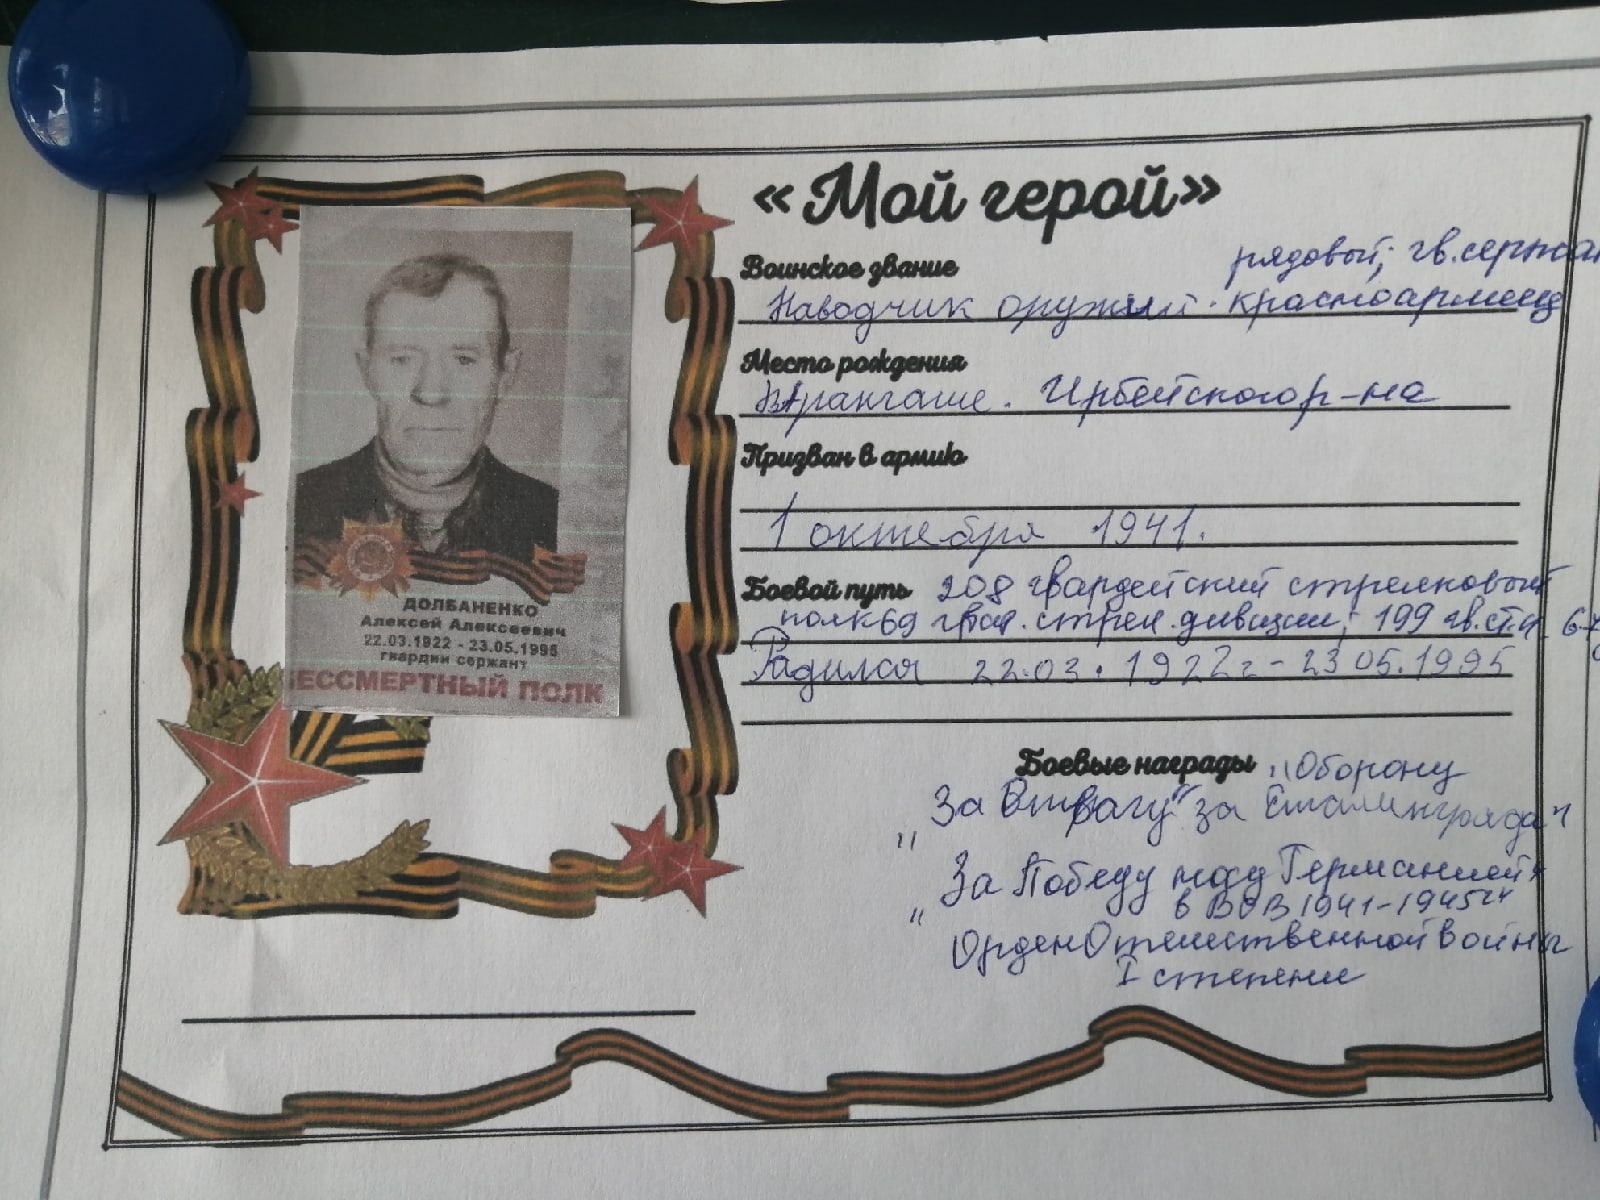 «Мой герой»
Воинское звание рядовой; гв. сержан
Наводчик оружий. красноармеец
Место рождения
Ирбейского р-на
Призван в армию
1 октября 1941.
Боевой путь 208 гвардейский стрелковый
полк 69 гвар. стрел. дивизии; 199 гв.
Радился 22.03.1922 г - 23 05.1995
Боевые награды "Оборону
"За Отвагу" за Сталинграда"
"За Победу над Германией"
в ВОВ 1941-1945 гг
Орден Отечественной Войны
I степени
ДОЛБАНЕНКО
Алексей Алексеевич
22.03.1922 - 23.05.1995
гвардии сержант
БЕССМЕРТНЫЙ ПОЛК